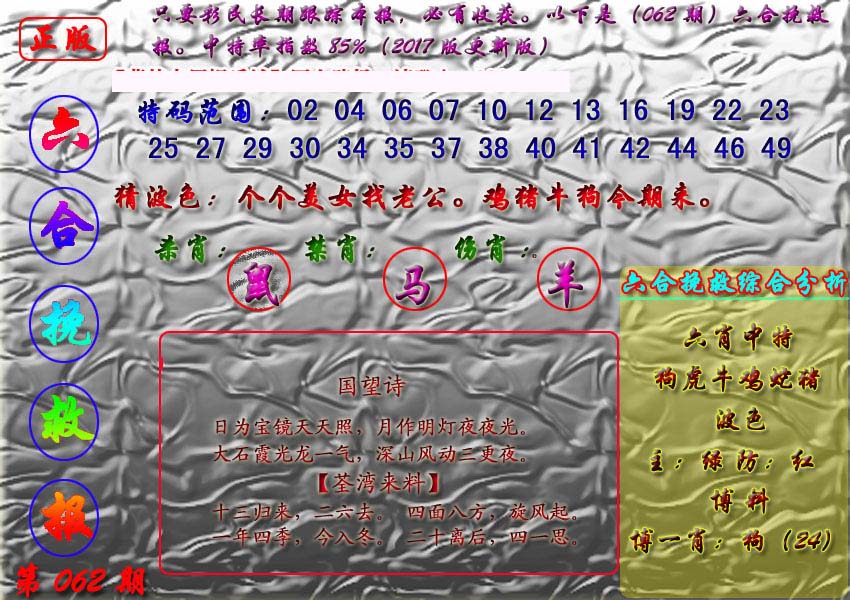 正版
只要彩民长期跟踪本报，必有收获。以下是（062期）六合挽救
报。中特率指数85%（2017版更新版）
六合挽救报
第062期
特码范围：02 04 06 07 10 12 13 16 19 22 23
25 27 29 30 34 35 37 38 40 41 42 44 46 49
猜波色：个个美女找老公。鸡猪牛狗今期来。
杀肖：鼠 禁肖：马 伤肖：羊
国望诗
日为宝镜天天照，月作明灯夜夜光。
大石霞光龙一气，深山风动三更夜。
【荃湾来料】
十三归来，二六去。 四面八方，旋风起。
一年四季，今入冬。 二十离后，四一思。
六合挽救综合分析
六肖中特
狗虎牛鸡蛇猪
波色
主：绿 防：红
博料
博一肖：狗（24）